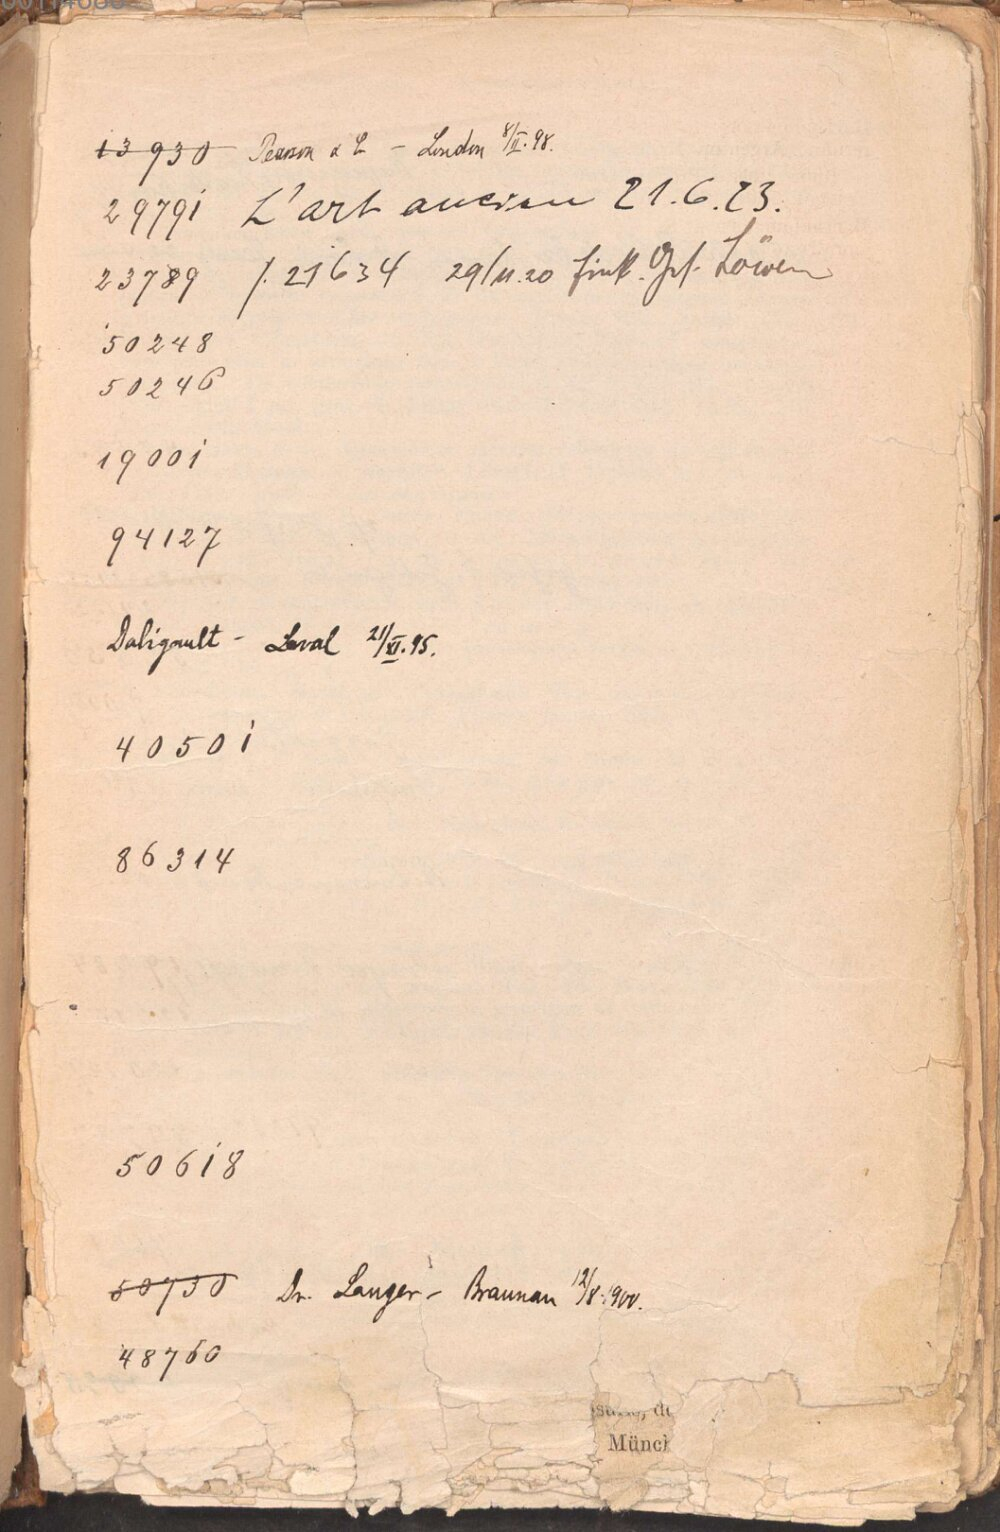 13930 Pearson & C - London 8/II.98.
29791 L'art ancien 21.6.23.
23789 f. 21634 29/11.20 Löwen
50248
50246
19001
94127
Daligault - Laval 21/XI.95.
40501
86314
50618
50730 Dr. Langer - Braunau 12/8.1900.
48760
Münch